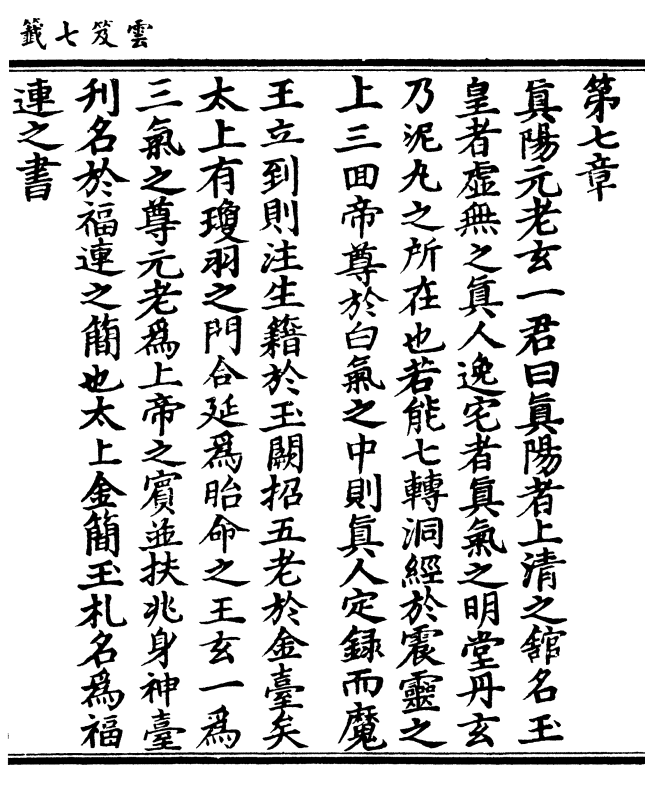 雲笈七籤
第七章
眞陽元老玄一君曰眞陽者上清之舘名玉
皇者虛無之眞人逸宅者眞氣之明堂丹玄
乃泥丸之所在也若能七轉洞經於震靈之
上三囬帝尊於白氣之中則眞人定録而魔
王立到則注生籍於玉闕招五老於金臺矣
太上有瓊羽之門合延爲胎命之王玄一爲
三氣之尊元老爲上帝之賓並扶兆身神臺
刋名於福連之簡也太上金簡玉札名爲福
連之書